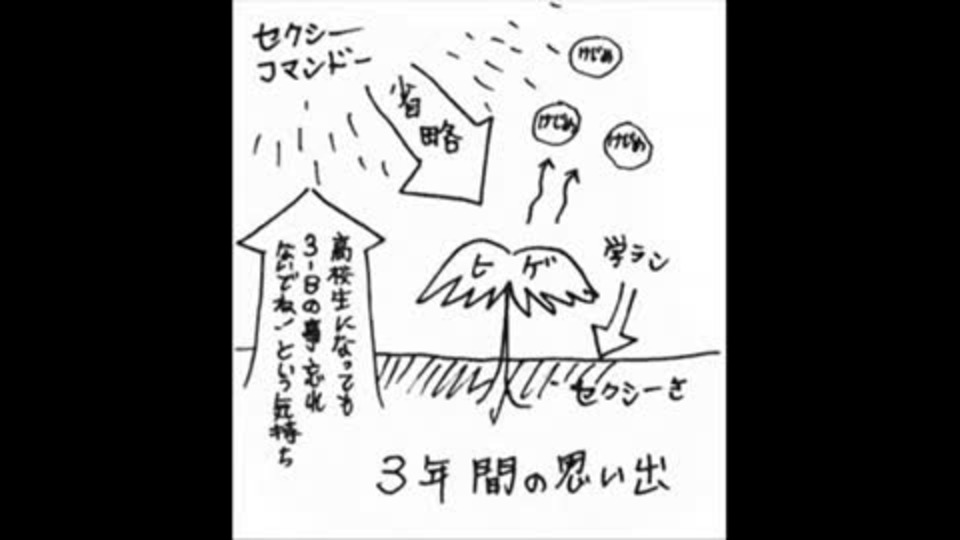 セクシー
コマンドー
省略
けじめ
けじめ
けじめ
ヒゲ
学ラン
セクシーさ
高校生になっても
3-Bの事忘れ
ないでね!という気持ち
3年間の思い出